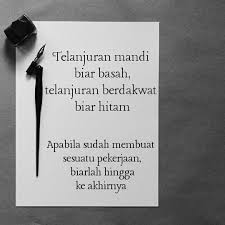 Telanjuran mandi
biar basah,
telanjuran berdakwat
biar hitam
Apabila sudah membuat
sesuatu pekerjaan,
biarlah hingga
ke akhirnya